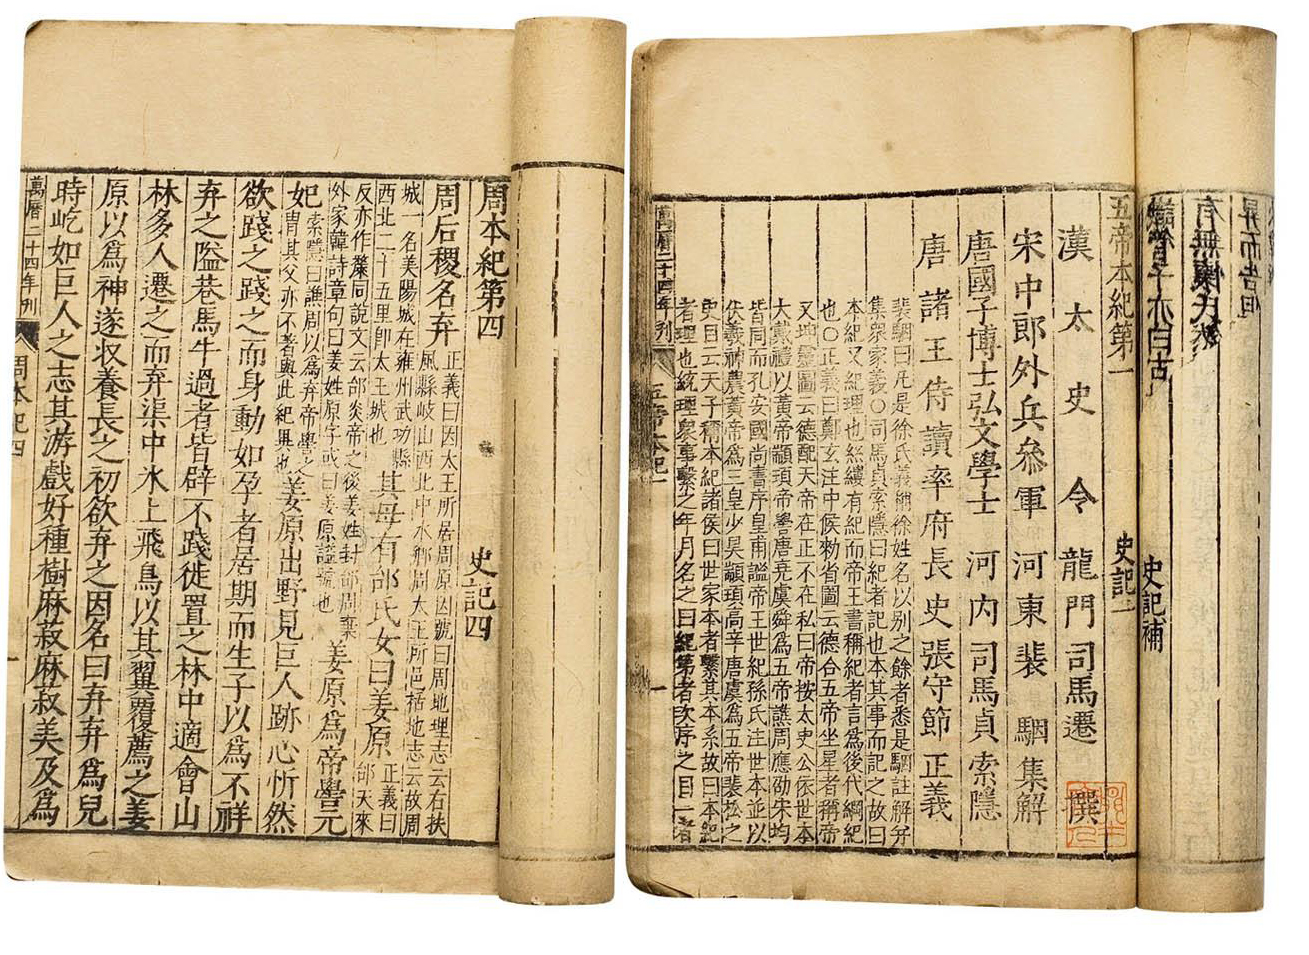 史記補
五帝本紀第一 史記一
漢太史令龍門司馬遷撰
宋中郎外兵叅軍河東裴駰集解
唐國子博士弘文學士河內司馬貞索隱
唐諸王侍讀率府長史張守節正義
裴駰曰凡是徐氏義稱徐姓名以別之餘者悉是駰註解弁
集衆家義○司馬貞索隱曰紀者記也本其事而記之故曰
本紀又紀理也絲縷有紀而帝王書稱紀者言爲後代綱紀
也○正義曰鄭玄注中候勑省圖云德合五帝坐星者稱帝
又坤靈圖云德配天帝在正不在私曰帝按太史公依世本
大戴禮以黃帝顓頊帝嚳唐堯虞舜爲五帝譙周應劭宋均
皆同而孔安國尚書序皇甫謐帝王世紀孫氏注世本並以
伏羲神農黃帝爲三皇少昊顓頊高辛唐虞爲五帝裴松之
史目云天子稱本紀諸侯曰世家本者繫其本系故曰本紀
者理也統理衆事繫之年月名之曰紀第者次序之目一者
萬曆二十四年刊 五帝本紀一 一
周本紀第四 史記四
周后稷名弃 正義曰因太王所居周原因號曰周地理志云右扶
風縣岐山西北中水鄉周太王所邑括地志云故周
城一名美陽城在雍州武功縣
西北二十五里即太王城也 其母有邰氏女曰姜原 正義曰
邰天來
反亦作斄同說文云邰炎帝之後姜姓封邰周棄
外家韓詩章句曰姜姓原字或曰姜原謚號也 姜原爲帝嚳元
妃 索隱曰譙周以爲弃帝嚳之
胄其父亦不著與此紀異也 姜原出野見巨人跡心忻然
欲踐之踐之而身動如孕者居期而生子以爲不祥
弃之隘巷馬牛過者皆辟不踐徙置之林中適會山
林多人遷之而弃渠中氷上飛鳥以其翼覆薦之姜
原以爲神遂收養長之初欲弃之因名曰弃弃爲兒
時屹如巨人之志其游戲好種樹麻菽麻菽美及爲
萬曆二十四年刊 周本紀四 一